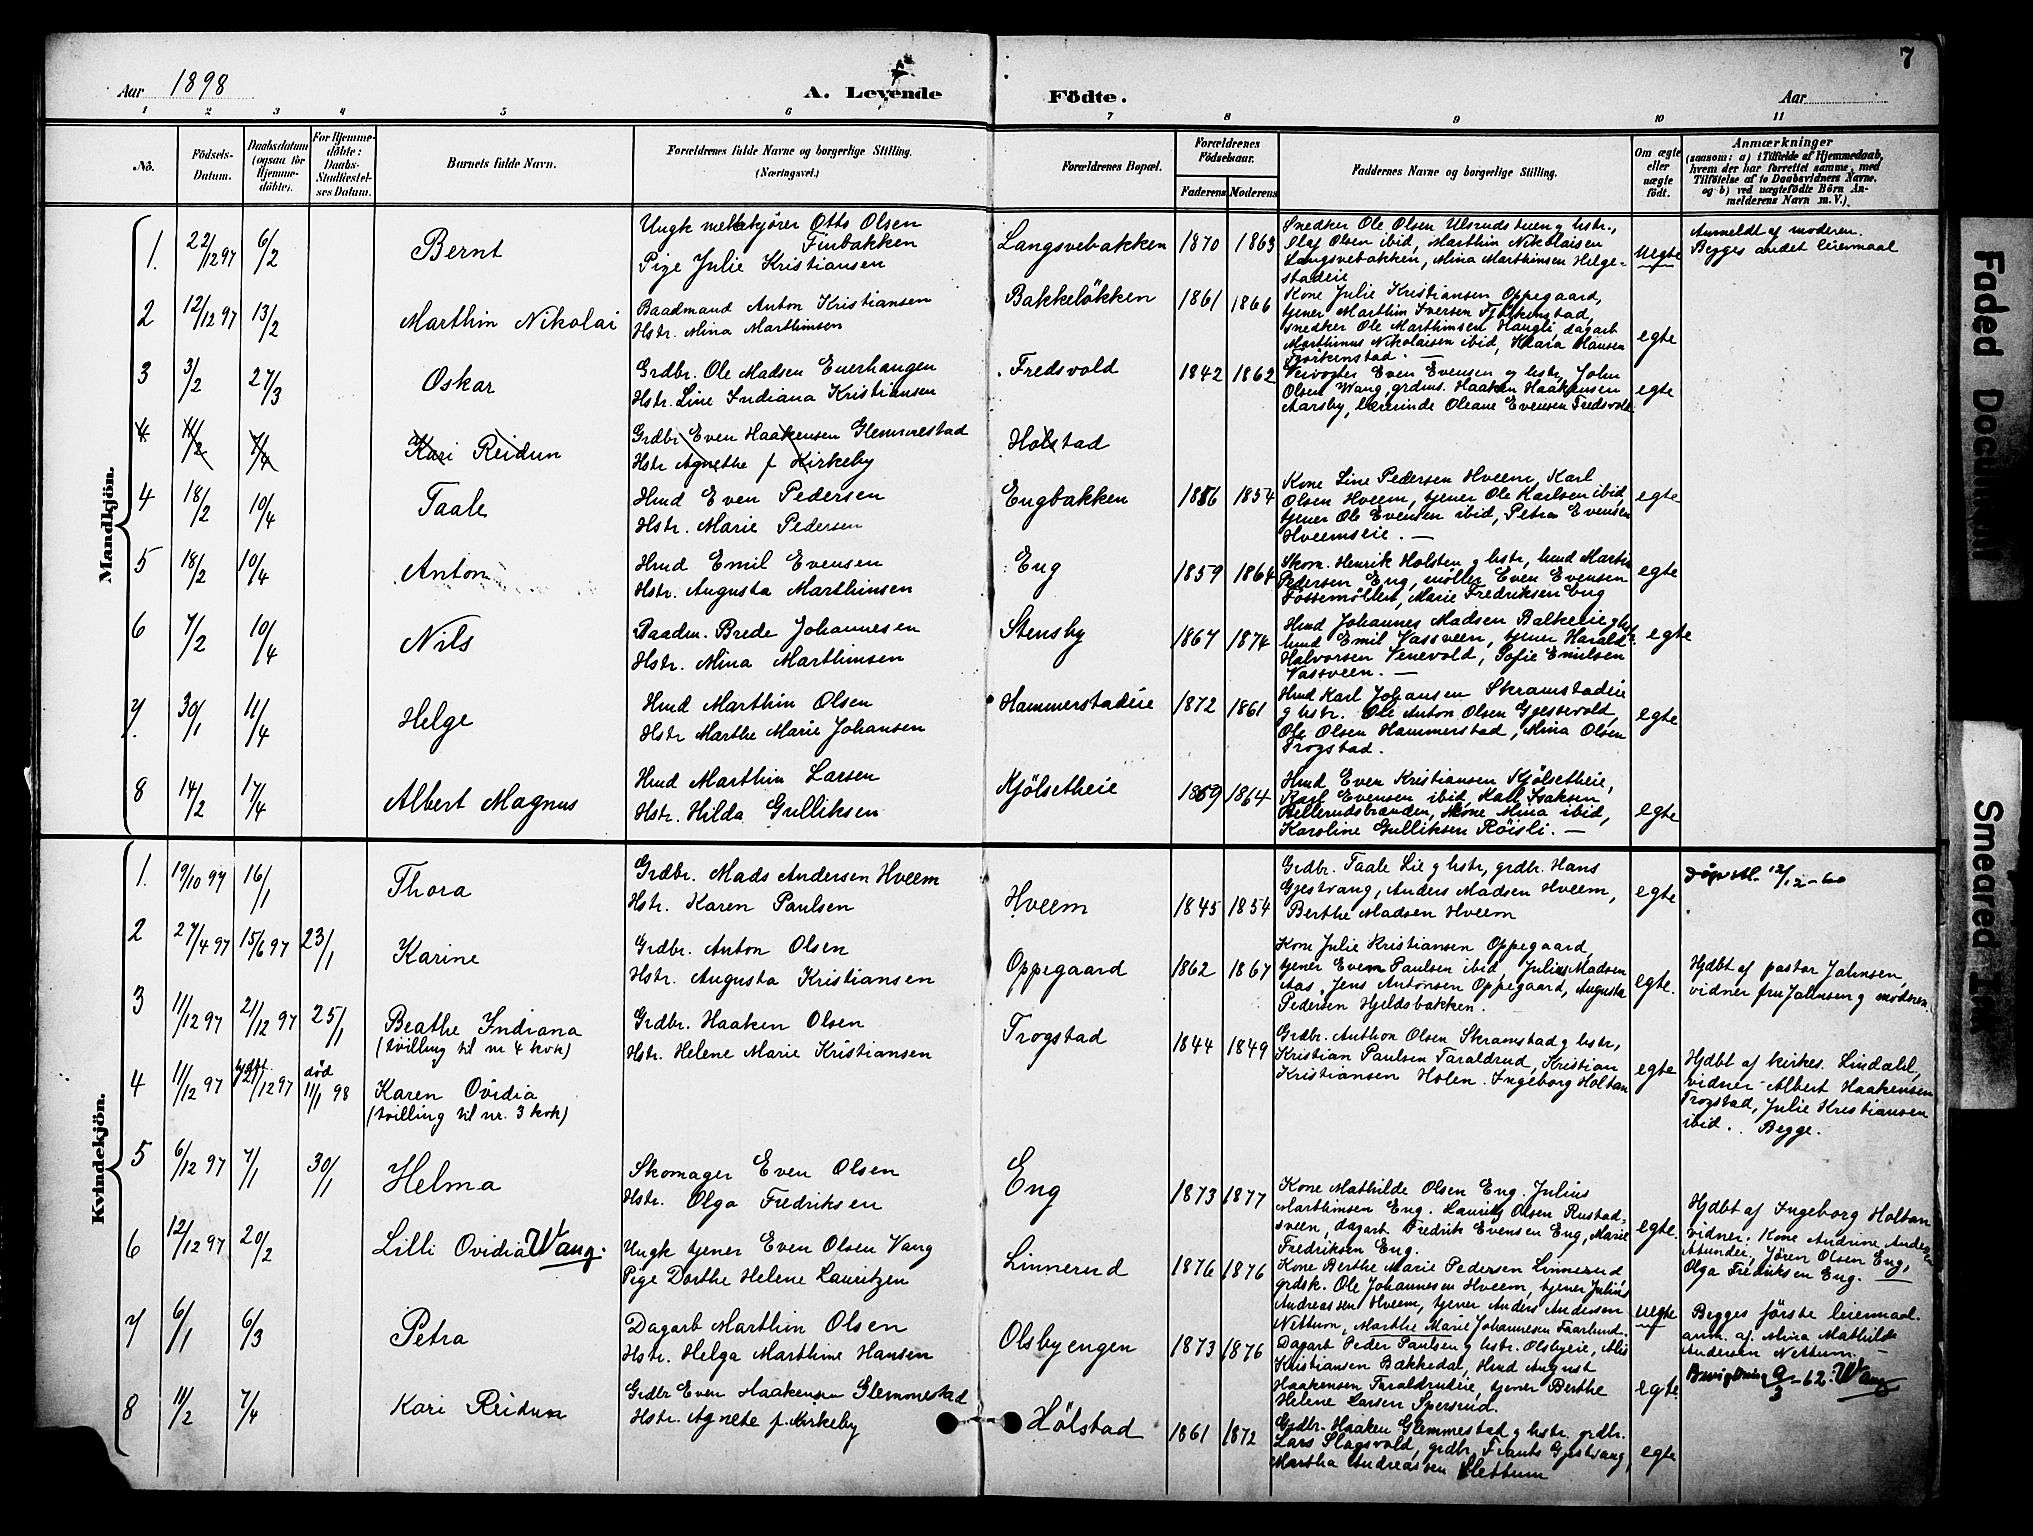 7
Aar 1898
A. Levende Födte.
Aar
1 2 3 4 5 6 7 8 9 10 11
No.
Födsels-Datum.
Daabsdatum (ogsaa for Hjemme-döbte).
For Hjemme-döbte: Daabs-Stadfæstel-ses Datum.
Barnets fulde Navn.
Forældrenes fulde Navne og borgerlige Stilling.
(Næringsvei.)
Forældrenes Bopæl.
Forældrenes Födselsaar.
Faderens Moderens
Faddernes Navne og borgerlige Stilling.
Om ægte eller uægte født.
Anmærkninger
(saasom: a) i Tilfælde af Hjemmedaab,
hvem der har forrettet samme, med
Tilföielse af to Daabsvidners Navne,
og b) ved uægtefödte Börn An-
melderens Navn m. V.)
Mandkjön.
1. 22/12 97 6/2 Bernt
Ungk Otto Olsen
Finbakken
Pige Julie Kristiansen
Langsvebakken 1870 1863
Snedker Ole Olsen Ulsrudstuen g hstr.,
Olaf Olsen ibid, Marthin Nikolaisen
Langsvebakken, Mina Marthinsen Helge-
stadeie
uegte
Anmeldt af moderen.
Begges andet leiermaal
2 12/12 97 13/2 Marthin Nikolai
Baadmand Anton Kristiansen
Hstr. Mina Marthinsen
Bakkeløkken 1861 1866
Kone Julie Kristiansen Oppegaard,
tjener Marthin Iversen Fjørkenstad,
snedker Ole Marthinsen Haugli, dagarb
Marthinus Nikolaisen ibid, Klara Hansen
Fjørkenstad. —
egte
3 3/2 27/3 Oskar
Grdbr. Ole Madsen Enerhaugen
Hstr. Line Indiana Kristiansen
Fredsvold 1842 1862
Veivogter Even Evensen og hstr, John
Olsen Wang, grdms. Haaken Haakensen
Aarsby, lærerinde Oleane Evensen Fredsvold
egte
4 11/2 7/4 Kari Reidun
Grdbr Even Haakensen Glemmestad
Hstr Agnethe f Kirkeby
Holstad
4 18/2 10/4 Taale
Hmd Even Pedersen
Hstr. Marie Pedersen
Engbakken 1856 1854
Kone Line Pedersen Hveem, Karl
Olsen Hveem, tjener Ole Karlsen ibid,
tjener Ole Evensen ibid, Petra Evensen
Hveemseie. —
egte
5 18/2 10/4 Anton
Hmd Emil Evensen
Hstr. Augusta Marthinsen
Eng 1859 1864
Skom. Henrik Holsten g hstr, hmd Martin
Pedersen Eng, møller Even Evensen
Fossemøllen, Marie Fredriksen Eng
egte
6 7/2 10/4 Nils
Baadm. Brede Johannesen
Hstr. Mina Marthinsen
Stensby 1867 1874
Hmd Johannes Madsen Balkeeie g hstr
hmd Emil Vassveen, tjener Harald
Halvorsen Venevold, Sofie Emilsen
Vassveen. —
egte
7. 30/1 11/4 Helge
Hmd Marthin Olsen
Hstr Marthe Marie Johansen
Hammerstadeie 1872 1861
Hmd Karl Johansen Skramstadeie
g hstr. Ole Anton Olsen Gjestvold,
Ole Olsen Hammerstad, Mina Olsen
Trogstad.
egte
8 14/2 17/4 Albert Magnus
Hmd Marthin Larsen
Hstr. Hilda Gulliksen
Kjölsetheie 1859 1864
Hmd Even Kristiansen Kjølsetheie,
Karl Evensen ibid, Karl Isaksen
Billerudsbraaden, Kone Mina ibid,
Karoline Gulliksen Röisli. —
egte
Kvindekjön.
1. 19/10 97 16/1 Thora
Grdbr. Mads Andersen Hveem
Hstr. Karen Paulsen
Hveem 1845 1854
Grdbr. Taale Lie g hstr, grdbr. Hans
Gjestvang, Anders Madsen Hveem,
Berthe Madsen Hveem
egte
12/12-60
2 27/4 97 15/6 97 23/1 Karine
Grdbr. Anton Olsen
Hstr. Augusta Kristiansen
Oppegaard 1862 1867
Kone Julie Kristiansen Oppegaard,
tjener Even Paulsen ibid, Julius Madsen
Aas, Jens Antonsen Oppegaard, Augusta
Pedersen Hjeldsbakken.
egte.
Hjdbt af pastor Jahnsen,
vidner fru Jahnsen g moderen.
3 11/12 97 21/12 97 25/1 Beathe Indiana
(tvilling til nr 4 kvk)
Grdbr. Haaken Olsen
Hstr. Helene Marie Kristiansen
Trogstad 1844 1849
Grdbr. Anthon Olsen Skramstad g hstr,
Kristian Paulsen Taraldrud, Kristian
Kristiansen Holen. Ingeborg Holtan
egte
Hjdbt af kirkes. Lindahl,
vidner Albert Haakensen
Trogstad, Julie Kristiansen
ibid. . Begge.
4 11/12 97 hjdbt 21/12 97 död 11/1 98 Karen Ovidia
(tvilling til nr. 3 kvk)
5 6/12 97 7/1 30/1 Helma
Skomager Even Olsen
Hstr. Olga Fredriksen
Eng 1873 1877
Kone Mathilde Olsen Eng. Julius
Marthinsen Eng. Lauritz Olsen Rustad-
sveen, dagarb Fredrik Evensen Eng, Marie
Fredriksen Eng.
egte.
Hjdbt af Ingeborg Holtan
vidner: Kone Andrine Andersen
Stundei, Jören Olsen Eng,
Olga Fredriksen Eng.
6 12/12 97 20/2 Lilli Ovidia Wang.
Ungk tjener Even Olsen Vang
Pige Dorthe Helene Lauritzen
Linnerud 1876 1876
Kone Berthe Marie Pedersen Linnerud
grdsk. Ole Johannesen Hveem, tjener Julius
Andreassen Hveem, tjener Anders Andersen
Nettum, Marthe Marie Johannesen Faarlund.
uegte
Begges første leiermaal.
anm. af. Mina Mathilde
Andersen Nettum. —
9/3-62. Wang
7 6/1 6/3 Petra
Dagarb Marthin Olsen
Hstr. Helga Marthine Hansen
Olsbyengen 1873 1876
Dagarb Peder Paulsen g hstr. Olsbyeie, Nils
Kristiansen Bakkedal, Hmd August
Haakensen Taraldrudeie, tjener Berthe
Helene Larsen Spersrud.
egte
8 11/2 7/4 Kari Reidun
Grdbr Even Haakensen Glemmestad
Hstr. Agnete f. Kirkeby
Hölstad 1861 1872
Grdbr. Haaken Glemmestad g hstr. grdbr.
Lars Slagsvold, grdbr. Frants Gjestvang,
Martha Andreassen Slettum
egte
Faded Document
Smeared Ink